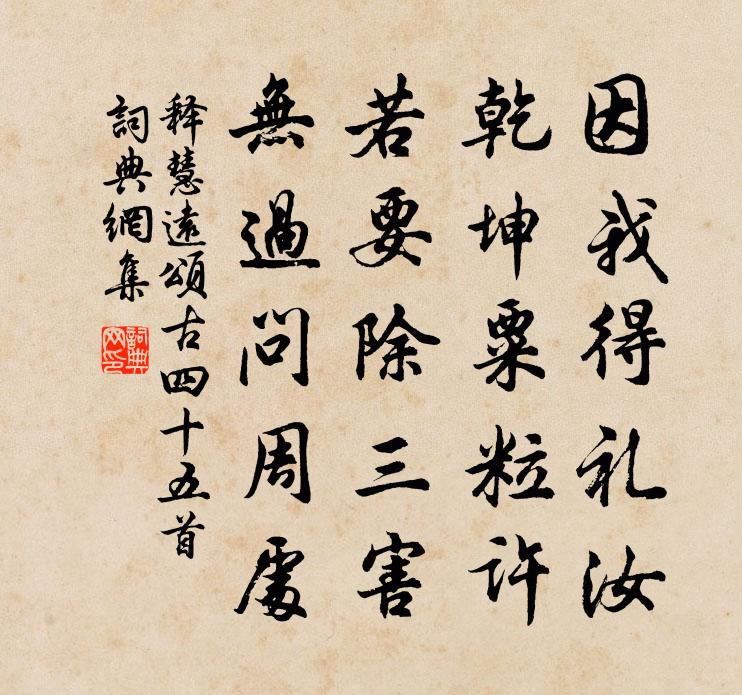 因我得礼汝
乾坤粟粒许
若要除三害
無過問周處
释慧遠頌古四十五首
詞典網集
詞典網印